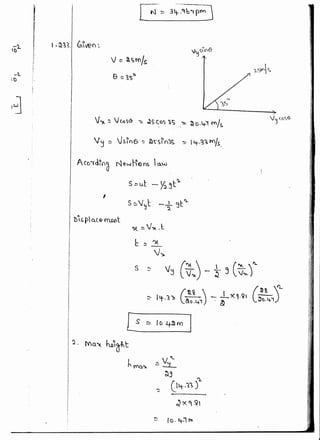 N = 34.967 rpm
1.233. Given:
V = 25m/s
θ = 35°
Vy sinθ
25m/s
35°
Vy cosθ
Vx = Vcosθ = 25 cos 35 = 20.47 m/s
Vy = Vsinθ = 25 sin 35 = 14.33 m/s
According Newtions law
S = ut - ½ gt²
S = Vyt - 1/2 gt²
Displacement
x = Vx.t
t = x/Vx
S = Vy (x/Vx) - 1/2 g (x/Vx)²
= 14.33 (28/20.47) - 1/2 × 9.81 (28/20.47)²
S = 10.42m
2. Max height
h max = Vy²/2g
= (14.33)²/2×9.81
= 10.47m